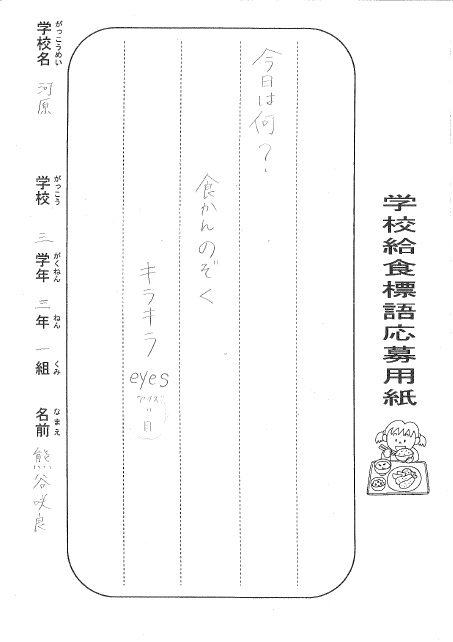 学校給食標語応募用紙
今日は何?
食かんのぞく
キラキラeyes
アイズ
=目
がっこうめい
学校名 河原
がっこう
学校
がくねん
三 学年
ねん
三 年
くみ
一 組
なまえ
名前 熊谷咲良